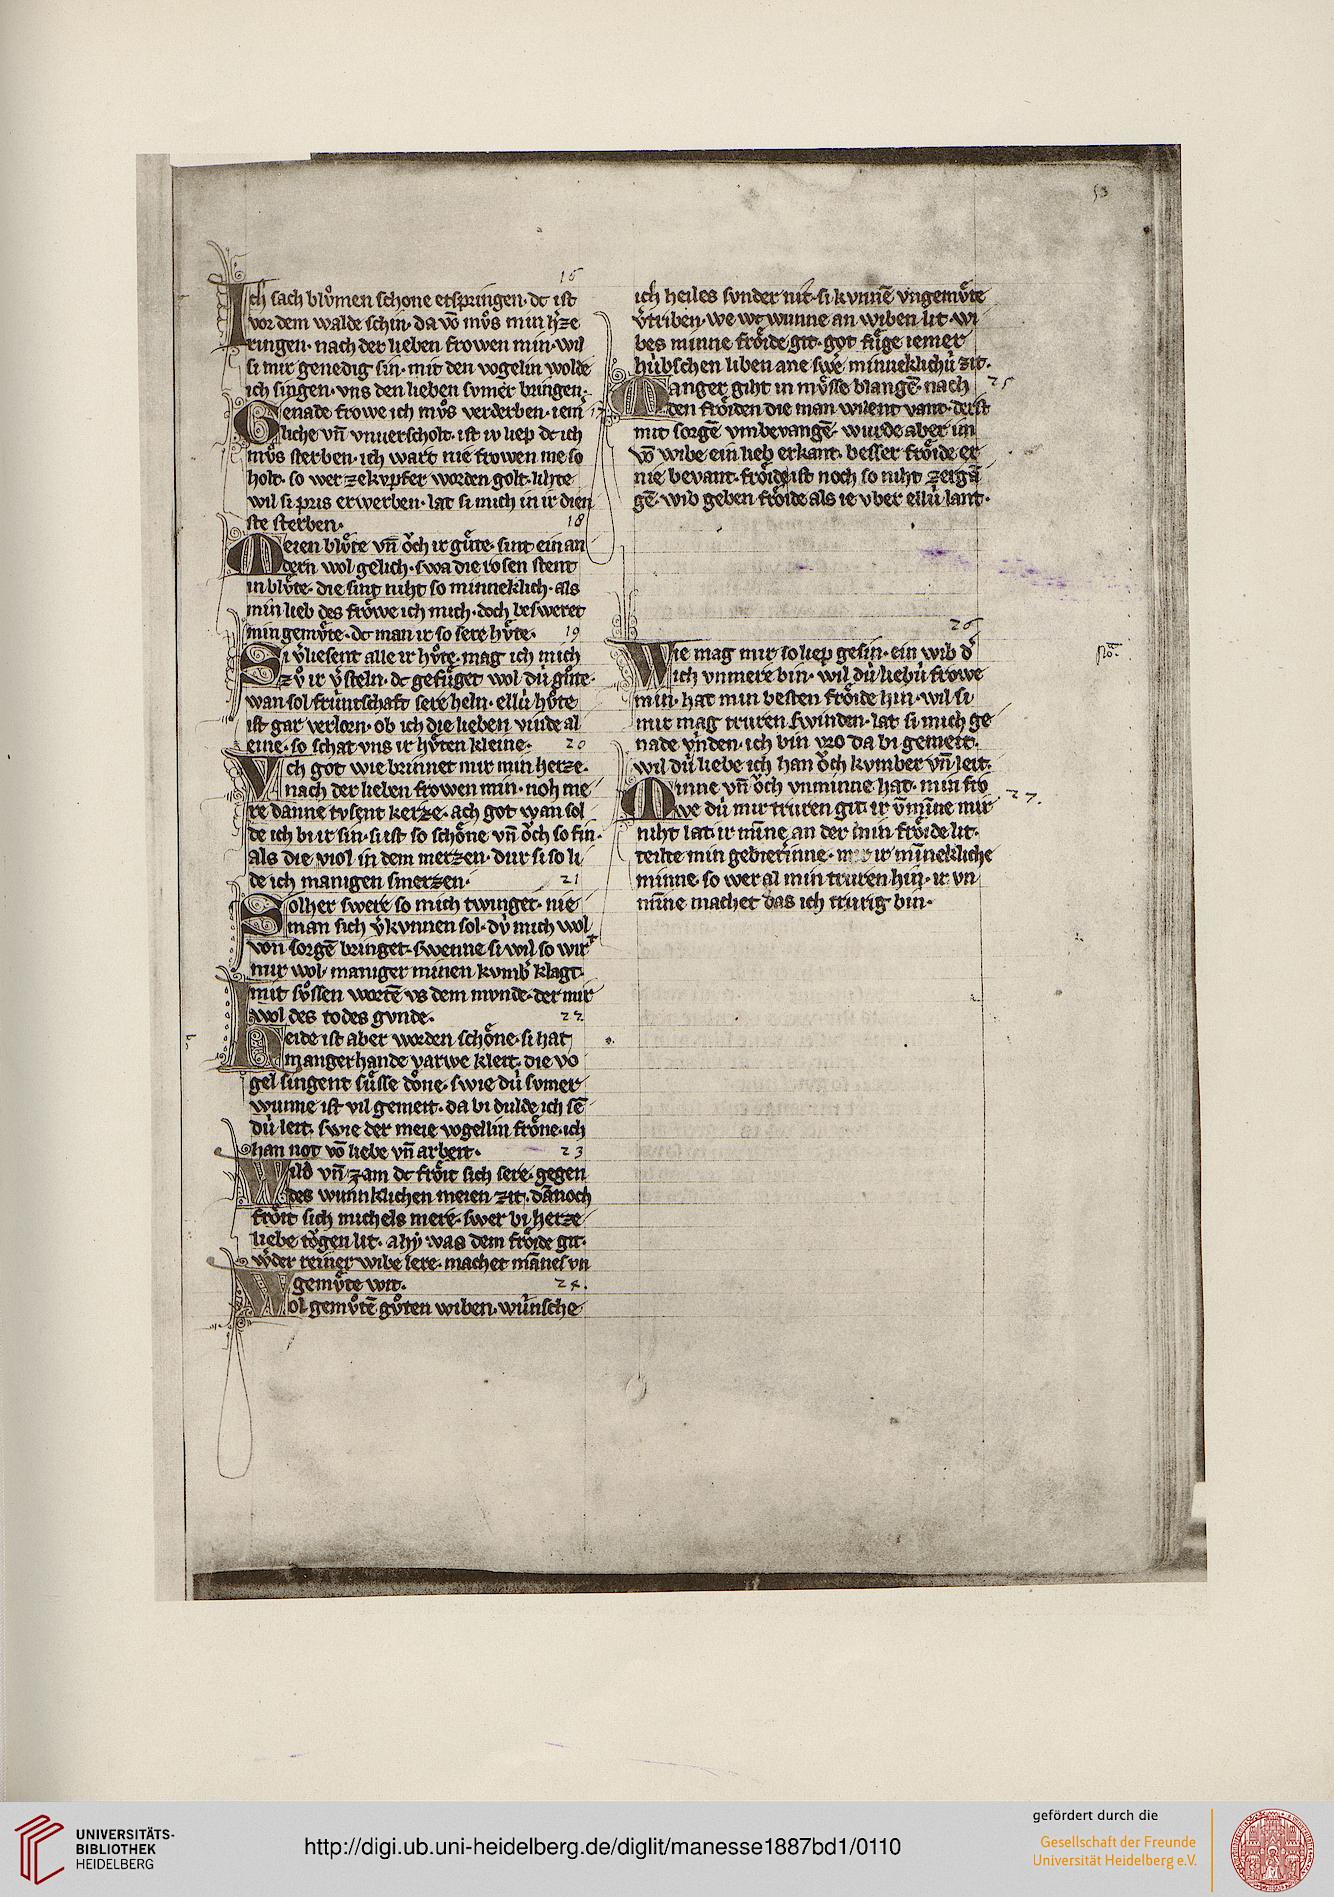 53
15
Ich sach blůmen schone entspringen· dc ist
vor dem walde schin· da vō můs min h̾ze
ringen· nach der lieben frowen min· wil
si mir genedig sin· mit den vogelin wolde
ich singen· vns den lieben svmer bringen·
Genade frowe ich můs verderben· iem̄ 17
liche vn̄ vnuerscholt· ist iv liep dc ich
můs sterben· ich wart nie frowen me so
holt· so wer ze kvpfer worden golt· lihte
wil si pris erwerben· lat si mich in ir dien
ste sterben· 18
Meien blůte vn̄ ǒch ir gůte· sint ein an
dern wol gelich· swa die rosen stent
in blůte· die sint niht so minneklich· als
min lieb des frǒwe ich mich· doch besweret
min gemůte· dc man ir so sere hůte· 19
Si v̾liesent alle ir hůte· mag ich mich
zů ir v̾steln· dc gefůget wol dú gůte·
wan sol frúntschaft sere heln· ellú hůte
ist gar verlorn· ob ich die lieben vinde al
eine· so schat vns ir hůten kleine· 20
Ach got wie brinnet mir min herze·
nach der lieben frowen min· noh me
re danne tvsent kerze· ach got wan sol
de ich bi ir sin· si ist so schǒne vn̄ ǒch so fin·
als die viol in dem merzen· dur si so li
de ich manigen smerzen· 21
Solher swere so mich twinget· nie
man sich v̾kvnnen sol· dú mich wol
von sorgē bringet· swenne si wil so wirt
mir wol· maniger minen kvmb̾ klagt·
mit sůssen wortē vs dem mvnde· der mir
wol des todes gvnde· 22
Heide ist aber worden schǒne· si hat
mangerhande varwe kleit· die vo
gel singent sůsse dǒne· swie dú svmer
wunne ist vil gemeit· da bi dulde ich sē
dú leit· swie der meie vogellin frǒne· ich
han not vō liebe vn̄ arbeit· 23
Wild vn̄ zam dc frǒit sich sere· gegen
des wunnklichen meien zit· dānoch
frǒit sich michels mere· swer bi herze
liebe tǒgen lit· ahy was dem frǒide git·
w̾der reiner wibe lere· machet mānes vn
gemůte wit· 24.
Wol gemůtē gůten wiben· wúnsche
ich heiles svnder nit· si kvnnē vngemůte
v̾triben· we wc wunne an wiben lit· wi
bes minne frǒide git· got fůge iemer
húbschen liben ane swē minneklichú zit·
Manger giht in můsse blangē· nach 25
den frǒiden die man wilent vant· derst
mit sorgē vmbevangē· wurde aber im
vō wibe ein lieb erkant· besser frǒide er
nie bevant· frǒide ist noch so niht zergā
gē· wib geben frǒide als ie vber ellú lant·
26
Wie mag mir so liep gesin· ein wib d̾
ich vnmere bin· wil dú liebú frowe
min· hat min besten frǒide hin· wil si
mir mag truren swinden· lat si mich ge
nade vinden· ich bin vro da bi gemeit·
wil dú liebe ich han ǒch kvmber vn̄ leit·
Minne vn̄ ǒch vnminne hat· min frǒ
we dú mir truren git· ir v̄mīne mir 27.
niht lat· ir mīne an der min frǒide lit·
teilte min gebieterinne· mir ir mīnekliche
minne· so wer al min truren hin· ir vn
mīne machet das ich trurig bin·
UNIVERSITÄTS-
BIBLIOTHEK
HEIDELBERG
http://digi.ub.uni-heidelberg.de/diglit/manesse1887bd1/0110
gefördert durch die
Gesellschaft der Freunde
Universität Heidelberg e.V.